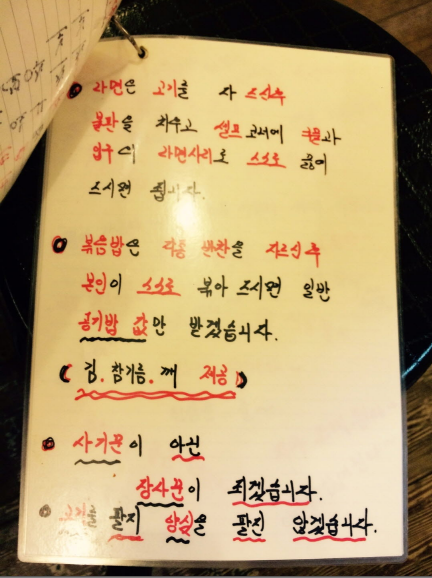 라면은 고기를 다 드신후
불판을 치우고 셀프코너에 육수과
입구에 라면사리로 스스로 끓여
드시면 됩니다.
볶음밥은 각종 반찬을 자르신후
본인이 스스로 볶아 드시면 일반
공기밥 값만 받겠습니다.
(김.참기름.깨 제공)
사기꾼이 아닌
장사꾼이 되겠습니다.
고기를 팔지 양심을 팔진 않겠습니다.